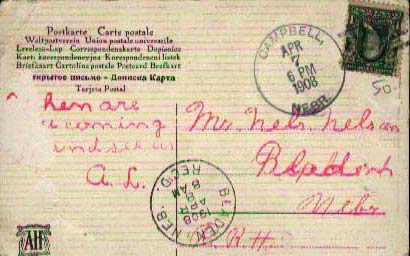 Postkarte Carte postale
Weltpostverein Union postale universelle
Levelezö-Lap Correspondenzkarte Dopisnice
Karta korespondencyjna Korespondenční lístek
Briefkaart Cartolina postale Postcard Brefkort
письмо - Дописна Карта
Tarjeta Postal
CAMPBELL,
APR
7
6 PM
1908
NEBR.
are
coming
and see us
A. L.
Mr. Nels Nelson
Bladen
Nebr
BLADEN, NEB.
APR
8 AM
1908
REC'D.
AH